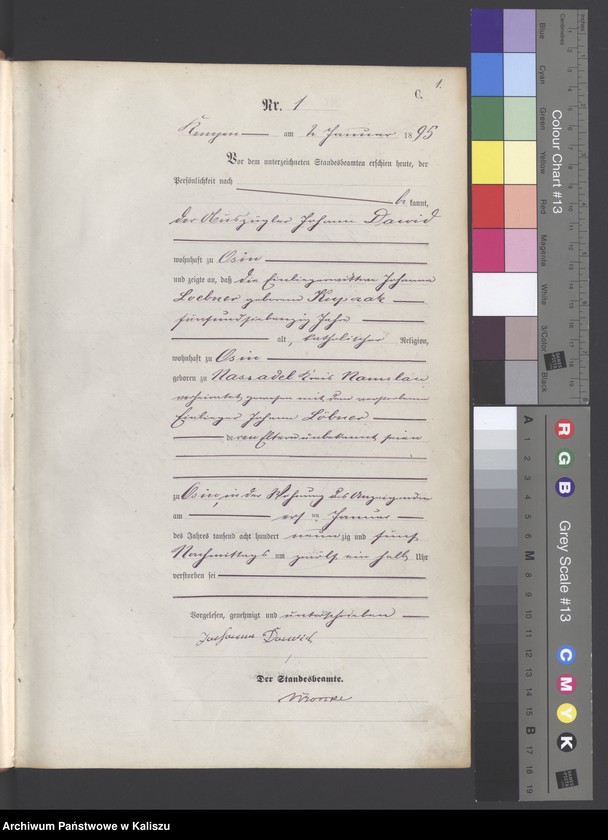 1.
C.
Nr. 1
Kempen am 2 Januar 1895
Vor dem unterzeichneten Standesbeamten erschien heute, der
Persönlichkeit nach
be kannt,
der Auszügler Johann Dawid
wohnhaft zu Osin
und zeigte an, daß die Einliegerwittwe Johanna
Loebner geborene Kupczak
fünfundsiebenzig Jahr
alt, katholischer Religion,
wohnhaft zu Osin
geboren zu Nassadel Kreis Namslau
verheirathet gewesen mit dem verstorbenen
Einlieger Johann Löbner
deren Eltern unbekannt seien
zu Osin, in der Wohnung des Anzeigenden
am ersten Januar
des Jahres tausend acht hundert neun zig und fünf,
Nachmittags um zwölf ein halb Uhr
verstorben sei
Vorgelesen, genehmigt und unterschrieben
Johann Dawid
Der Standesbeamte.
Blue
Cyan
Green
Yellow
Red
Magenta
White
3/Color
Black
Centimetres
Inches
Colour Chart #13
R
G
B
Grey Scale #13
C
M
Y
K
A
1
2
3
4
5
6
M
8
9
10
11
12
13
14
15
B
17
18
19
Archiwum Państwowe w Kaliszu